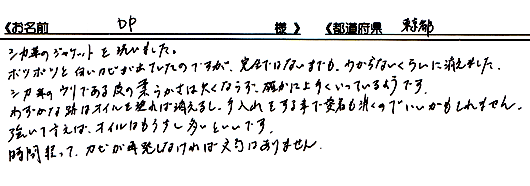 《お名前 DP 様》 《都道府県 東京都
シカ革のジャケットを洗いました。
ポツポツと白いカビが出ていたのですが、完全ではないまでも、わからないくらいに消えました。
シカ革のウリである皮の柔らかさは欠くならず、確かに上手くいっているようです。
わずかな跡はオイルを塗れば消えるし、手入れをする事で愛着も湧くのでいいかもしれません。
強いて言えば、オイルはもう少し多いといいです。
時間経って、カビが再発しなければ文句はありません。